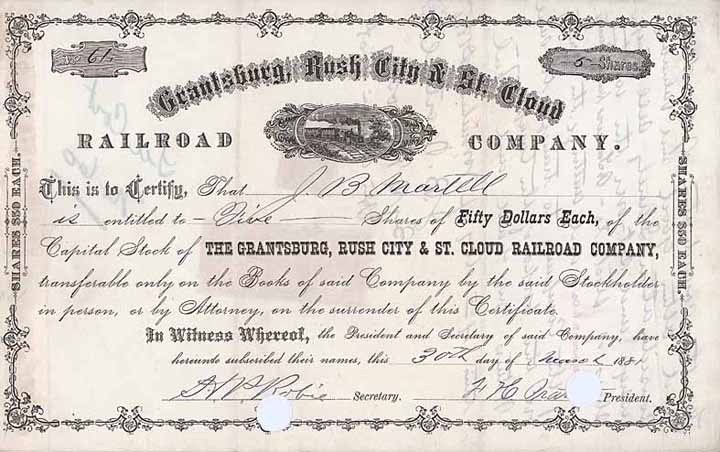 No. 61.
5 Shares.
Grantsburg, Rush City & St. Cloud
RAILROAD COMPANY.
SHARES $50 EACH.
SHARES $50 EACH.
This is to Certify, That J. B. Martell
is entitled to Five Shares of Fifty Dollars Each, of the
Capital Stock of THE GRANTSBURG, RUSH CITY & ST. CLOUD RAILROAD COMPANY,
transferable only on the Books of said Company by the said Stockholder
in person, or by Attorney, on the surrender of this Certificate.
In Witness Whereof, the President and Secretary of said Company, have
hereunto subscribed their names, this 30th day of March 1881
Secretary. President.